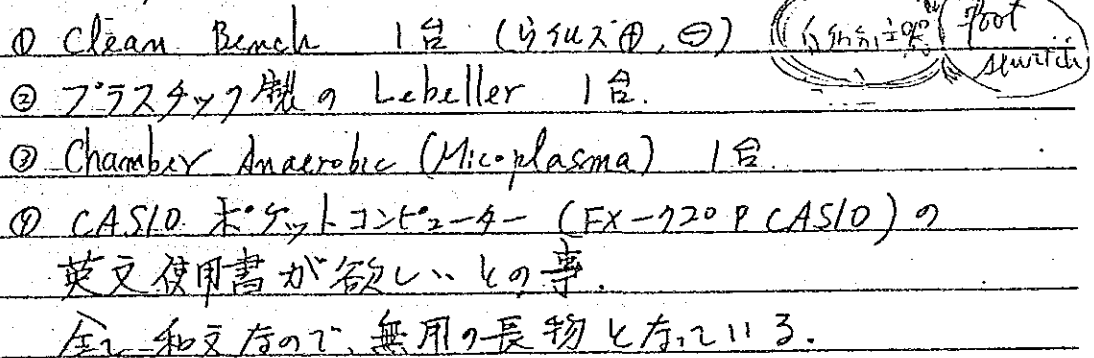 ① Clean Bench 1台 (ウイルス⊕, ⊖) foot switch
② プラスチック製の Lebeller 1台.
③ Chamber Anaerobic (Micoplasma) 1台.
④ CASIO ポケットコンピューター (FX-720P CASIO) の
英文使用書が欲しいとの事.
全て和文なので、無用の長物となっている.